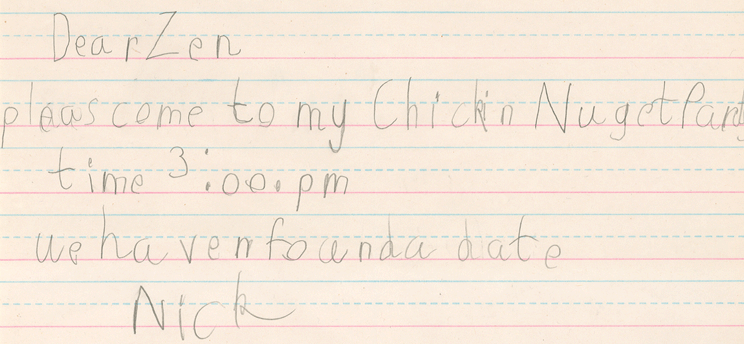 Dear Zen
pleas come to my Chickin Nuget Party
time 3:00.pm
we haven foumd a date
Nick